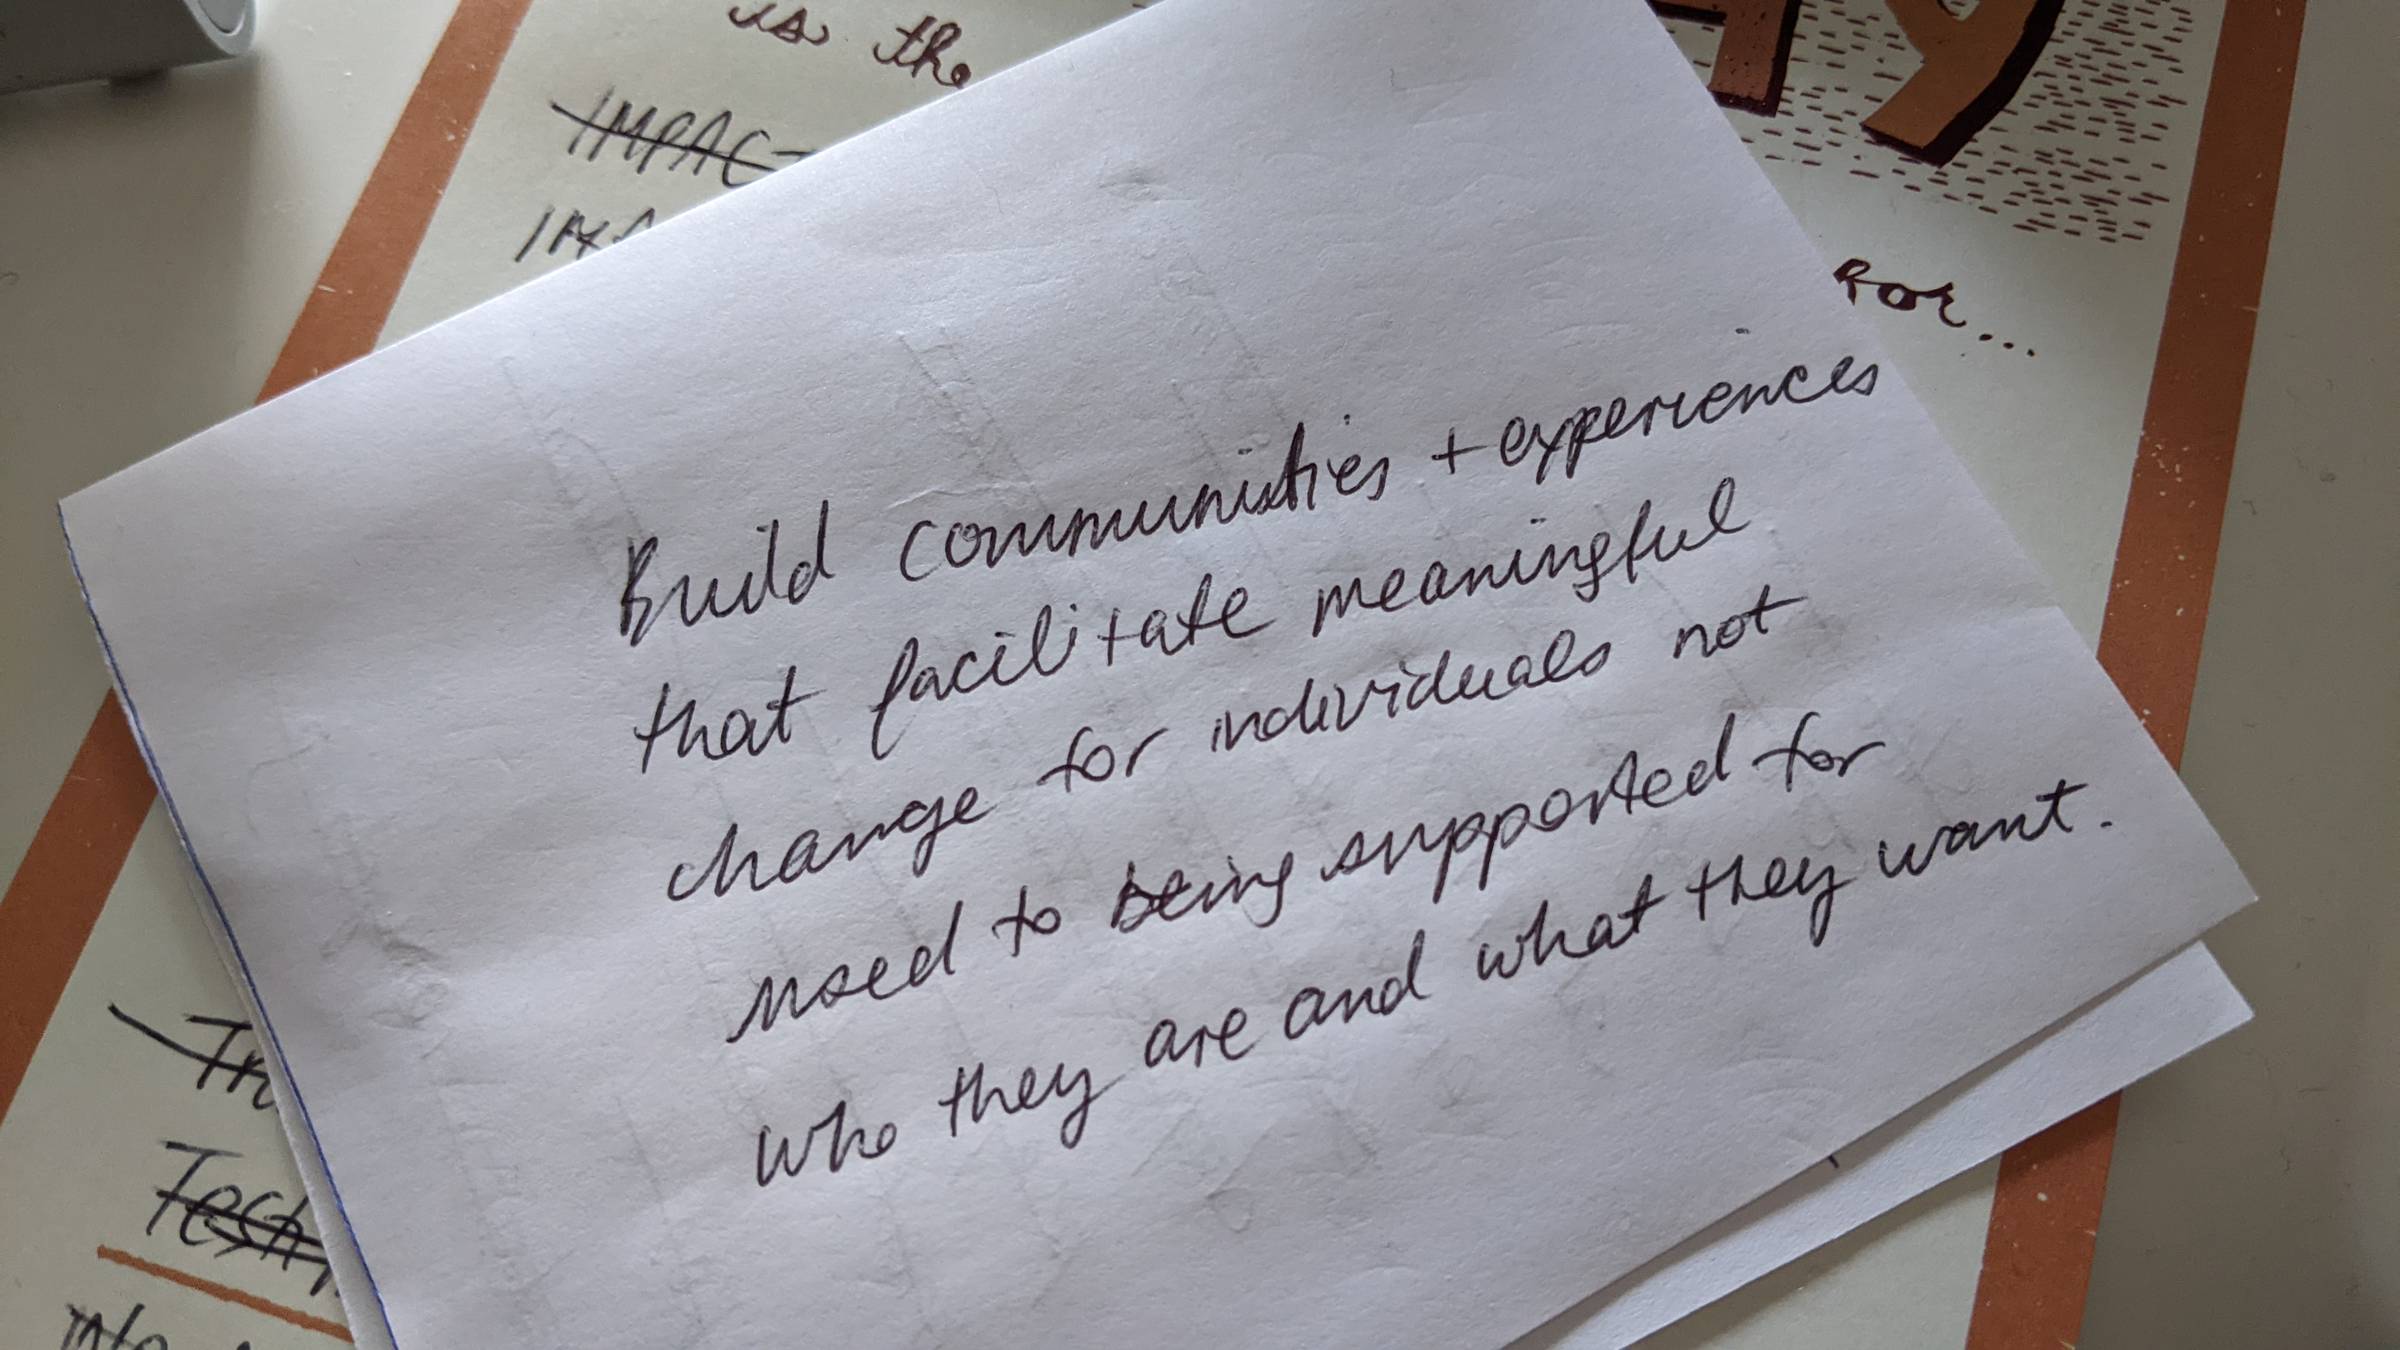 is the
IMPACT
For...
Build communities + experiences
that facilitate meaningful
change for individuals not
used to being supported for
who they are and what they want.